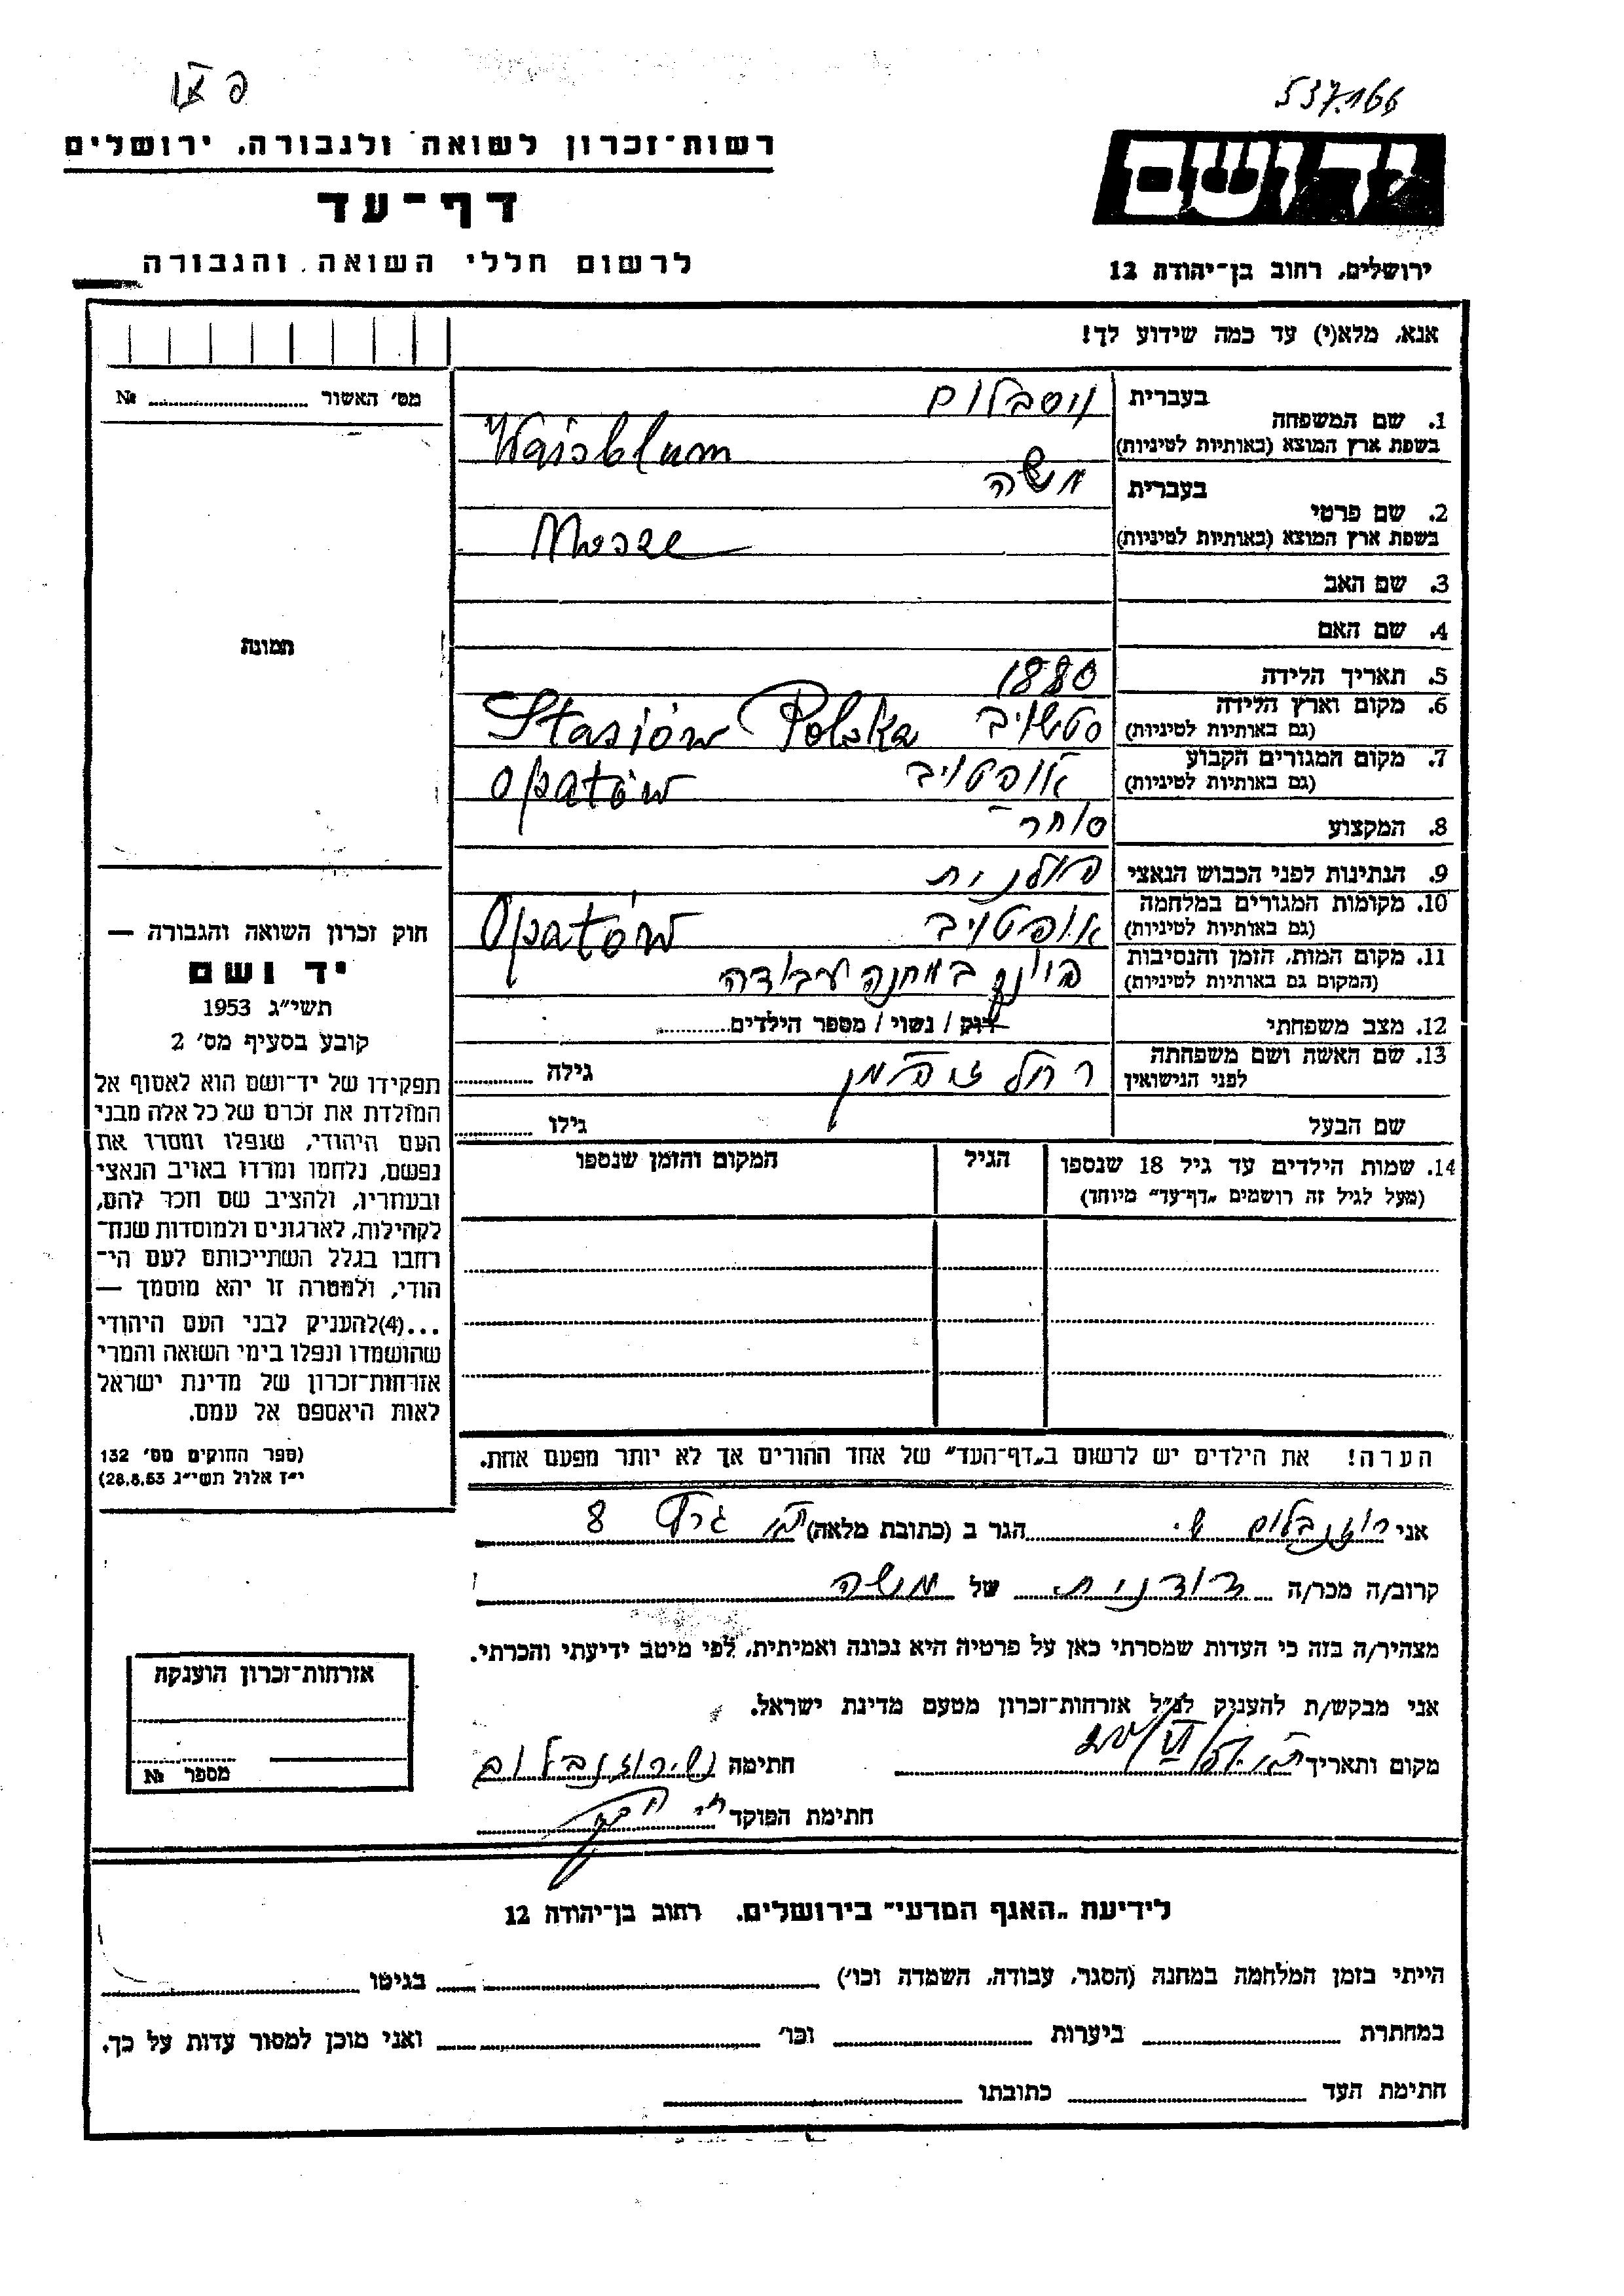 537.166
יד ושם
ירושלים, רחוב בן־יהודה 12
רשות־זכרון לשואה ולגבורה, ירושלים
דף־עד
לרשום חללי השואה והגבורה
אנא, מלא(י) עד כמה שידוע לך!
מס׳ האשור № 
בעברית ויסבלום
1. שם המשפחה
בשפת ארץ המוצא (באותיות לטיניות) Waisblum
בעברית משה
2. שם פרטי
בשפת ארץ המוצא (באותיות לטיניות)
3. שם האב
4. שם האם
5. תאריך הלידה 1880
6. מקום וארץ הלידה סטשויב Stasiów Polska
(גם באותיות לטיניות)
7. מקום המגורים הקבוע אופטויב Opatów
(גם באותיות לטיניות)
8. המקצוע סוחר
9. הנתינות לפני הכבוש הנאצי פולנית
10. מקומות המגורים במלחמה אופטויב Opatów
(גם באותיות לטיניות)
11. מקום המות, הזמן והנסיבות במחנה עבודה
(המקום גם באותיות לטיניות)
12. מצב משפחתי רוק / נשוי / מספר הילדים
13. שם האשה ושם משפחתה רחל גילה
לפני הנישואין
שם הבעל גילו
14. שמות הילדים עד גיל 18 שנספו הגיל המקום והזמן שנספו
(מעל לגיל זה רושמים „דף־עד״ מיוחד)
הערה! את הילדים יש לרשום ב„דף־העד״ של אחד ההורים אך לא יותר מפעם אחת.
תמונה
חוק זכרון השואה והגבורה —
יד ושם
תשי״ג 1953
קובע בסעיף מס׳ 2
תפקידו של יד־ושם הוא לאסוף אל
המולדת את זכרם של כל אלה מבני
העם היהודי, שנפלו ומסרו את
נפשם, נלחמו ומרדו באויב הנאצי
ובעוזריו, ולהציב שם וזכר להם,
לקהילות, לארגונים ולמוסדות שנח־
רחבו בגלל השתייכותם לעם הי־
הודי, ולמטרה זו יהא מוסמך —
...(4)להעניק לבני העם היהודי
שהושמדו ונפלו בימי השואה והמרי
אזרחות־זכרון של מדינת ישראל
לאות היאספם אל עמם.
(ספר החוקים מס׳ 132
י״ז אלול תשי״ג 28.8.53)
אני רוזנבלום ש. הגר ב (כתובת מלאה) 8
קרוב/ה מכר/ה דודנית של משה
מצהיר/ה בזה כי העדות שמסרתי כאן על פרטיה היא נכונה ואמיתית, לפי מיטב ידיעתי והכרתי.
אני מבקש/ת להעניק לנ״ל אזרחות־זכרון מטעם מדינת ישראל.
מקום ותאריך חתימה ש. רוזנבלום
חתימת הפוקד
אזרחות־זכרון הוענקה
מספר №
לידיעת „האגף המדעי״ בירושלים, רחוב בן־יהודה 12
הייתי בזמן המלחמה במחנה (הסגר, עבודה, השמדה וכו׳) בגיטו
במחתרת ביערות וכו׳ ואני מוכן למסור עדות על כך.
חתימת העד כתובתו